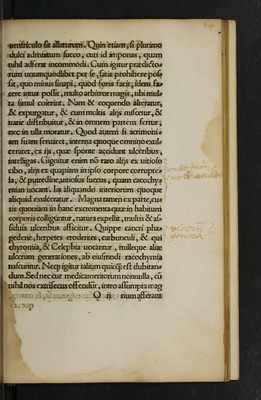 uentriculo sit allaturum. Quin etiam, si plurimo
dulci admistum succo, cui id imponas, quam
nihil adferat incommodi. Cum igitur prædicto-
rum unumquodlibet per se, satis prohibere pos-
sit, quo minus sinapi, quod foris facit, idem fa-
cere intus possit, multo arbitror magis, ubi mul-
ta simul coierint. Nam & coquendo alteratur,
& expurgatur, & cum multis alijs miscetur, &
uarie distribuitur, & in omnem partem fertur,
nec in ulla moratur. Quod autem si acrimoni-
am suam seruaret, interna quoque omnino exul-
ceraret, ex ijs, quæ sponte accidunt ulceribus,
intelligas. Gignitur enim nō raro alijs ex uitioso
cibo, alijs ex quapiam in ipso corpore corrupte-
la, & putredine, uitiosus succus, quam cacochy-
miam uocant. Iis aliquando interiorum quoque
aliquid exulceratur. Magna tamen ex parte, cu-
tis quoniam in hanc excrementa quæ in habitum
corporis colliguntur, natura expellit, multis & as-
siduis ulceribus afficitur. Quippe cancri pha-
gedenæ, herpetes erodentes, carbunculi, & qui
chyronia, & Telephia uocantur, milleque aliæ
ulcerum generationes, ab eiusmodi cacochymia
nascuntur. Necp igitur talium quicq̃ est dubitan-
dum. Sed nec cur medicamentorum nonnulla, cū
nihil nos extrisecus offendāt, intro assumpta mag
O ij num afferant